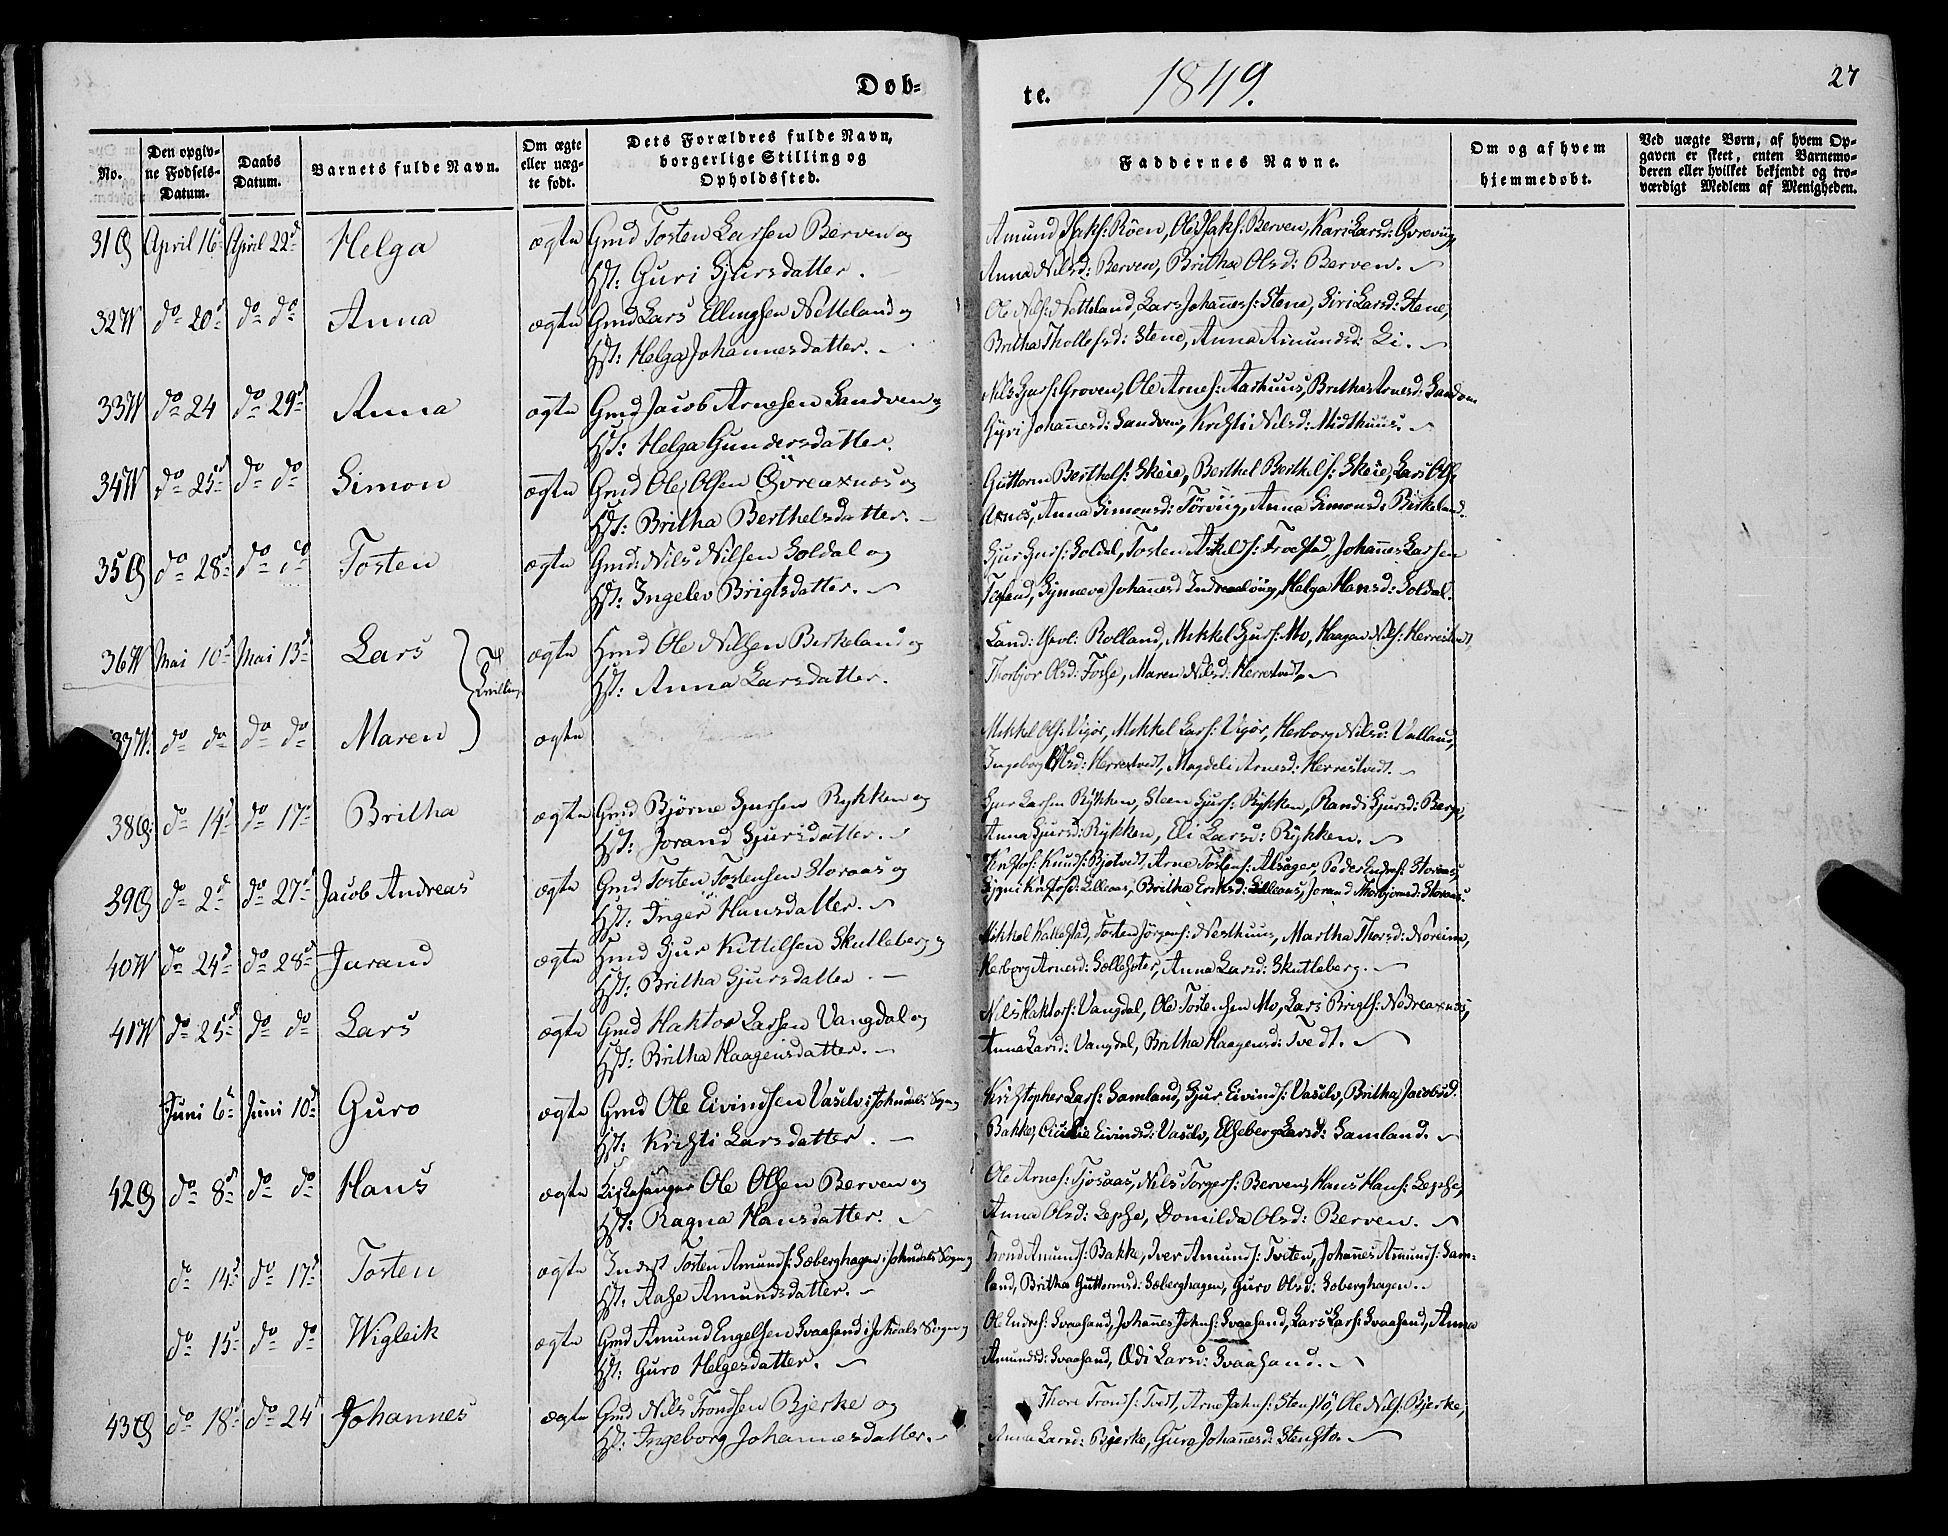 Døb-
te.
1849.
27
No.
Den opgiv-
ne Fødsels-
Datum.
Daabs
Datum.
Barnets fulde Navn.
Om ægte
eller uæg-
te født.
Dets Forældres fulde Navn,
borgerlige Stilling og
Opholdssted.
Faddernes Navne.
Om og af hvem
hjemmedøbt.
Ved uægte Børn, af hvem Op-
gaven er skeet, enten Barnemo-
deren eller hvilket bekjendt og tro-
værdigt Medlem af Menigheden.
31 April 16 April 22 Helga ægte Gmd Tosten Larsen Berven og
Hst: Guri Gjursdatter.
Amund Røen, Ole Berven, Kari Larsd:
Anna Nilsd: Berven, Britha Olsd: Berven.
32 do 20 do do Anna ægte Gmd Lars Ellingsen Netteland og
Hst: Helga Johannesdatter.
Ole Nils: Netteland, Lars Johannes: Stene, Siri Larsd: Stene,
Britha Stene, Anna Amundsd: Li.
33 do 24 do 29 Anna ægte Gmd Jacob Arnesen Sandven og
Hst: Helga Gundersdatter.
Nils Gjurs: Groven, Ole Arnes: Aarhuus, Britha Arnesd: Sandven
Gyri Johannesd: Sandven, Kristi Nilsd: Midthuus.
34 do 25 do do Simon ægte Gmd Ole Olsen Øvreaxnæs og
Hst: Britha Berthelsdatter.
Guttorm Berthels: Skeie, Berthel Berthels: Skeie, Lars Ols:
Axnes, Anna Simonsd: Tørviig, Anna Simonsd: Birkeland.
35 do 28 do do Tosten ægte Gmd: Nils Nilsen Soldal og
Hst: Ingelev Brigtsdatter.
Gjur Gjurs: Soldal, Tosten Froestad, Johannes Larsen
Synneva Johannesd Helga Hansd: Soldal.
36 Mai 10 Mai 13 Lars ægte Hmd Ole Nilsen Birkeland og
Hst: Anna Larsdatter.
Rolland, Mikkel Gjurs: Mo, Haagen Nils: Herrestvedt,
Thorbjør Olsd: Fosse, Maren Nilsd: Herrestvedt,
Tvilling
37 do do do do Maren ægte
Mikkel Ols: Vigør, Mikkel Lars: Vigør, Herborg Nilsd: Valland,
Ingeborg Olsd: Herrestvedt, Magdeli Arnesd: Herrestvedt.
38 do 14 do 17 Britha ægte Gmd Bjørne Gjursen Rykken og
Hst: Jorand Gjursdatter.
Gjur Larsen Rykken, Steen Gjurs: Rykken, Randi Gjursd: Berge,
Anna Gjursd: Rykken, Eli Larsd: Rykken.
39 do 2 do 27 Jacob Andreas ægte Gmd Tosten Tostensen Storaas og
Hst: Inger Hansdatter.
Knuds: Bjotvedt, Arne Tostens: Alsager, Peder Endres: Storaas,
Signi Lilleaas, Britha Eriksd: Lilleaas, Jorand Storaas.
40 do 24 do 28 Jurand ægte Hmd Gjur Kittilsen Skutleberg og
Hst: Britha Gjursdatter.
Mikkel Tosten Jørgens: Nesthuus, Martha Thorsd: Noreim,
Herborg Arnesd: Anna Larsd: Skutleberg.
41 do 25 do do Lars ægte Gmd Haktor Larsen Vangdal og
Hst: Britha Haagensdatter.
Nils Haktors: Vangdal, Ole Tostensen Mo, Lars Brigts: Nedreaxnæs,
Anna Larsd: Vangdal, Britha Haagensd: Tvedt.
Juni 6 Juni 10 Guro ægte Gmd Ole Eivindsen Vaselv i Johndals Sogn
Hst: Kristi Larsdatter.
Kristopher Lars: Samland, Gjur Eivinds: Vaselv, Britha Jacobsd:
Bakke, Cicilie Eivindsd: Vaselv, Elseberg Larsd: Samland.
42 do 8 do do Hans ægte Kirkesanger Ole Olsen Berven og
Hst: Ragna Hansdatter.
Ole Arnes: Tjosaas, Nils Torgers: Berven, Hans Hans: Lepse,
Anna Olsd: Lepse, Domilda Olsd: Berven.
do 14 do 17 Tosten ægte Inderst Tosten Amunds: Soberghagen i Johndals Sogn
Hst: Aase Amundsdatter.
Trond Amunds: Bakke, Iver Amunds: Tveten, Johannes Amunds: Sam-
land, Britha Guttormsd: Soberghagen, Guro Olsd: Soberghagen.
do 15 do do Wigleik ægte Gmd Amund Engelsen Svaasand i Johndals Sogn
Hst: Guro Helgesdatter.
Ole Endres: Svaasand, Johannes Johns: Svaasand, Lars Lars: Svaasand, Anna
Amundsd: Svaasand, Odi Larsd: Svaasand.
43 do 18 do 24 Johannes ægte Gmd Nils Trondsen Bjerke og
Hst: Ingeborg Johannesdatter.
Thore Tronds: Tvedt, Arne Johns: Stenstø, Ole Nils: Bjerke,
Anna Larsd: Bjerke, Guro Johannesd: Stenstø.